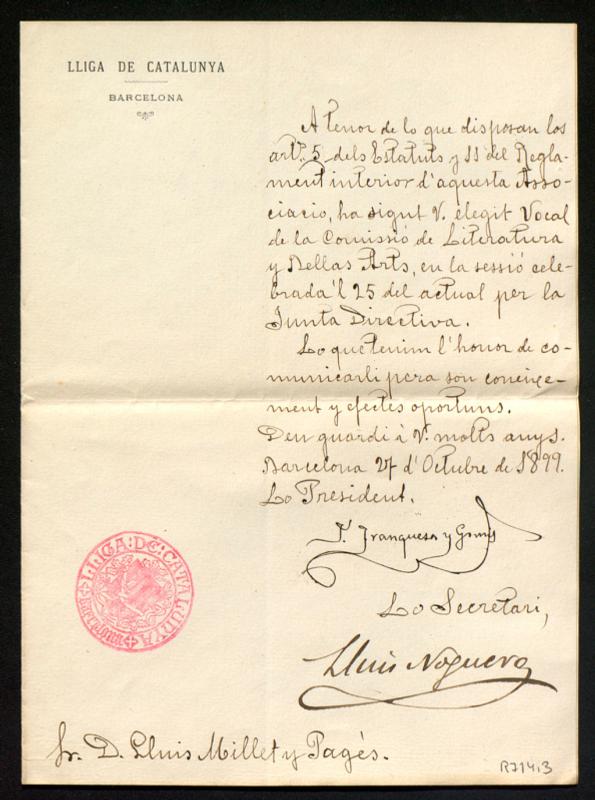 LLIGA DE CATALUNYA
BARCELONA
A tenor de lo que disposan los
arts. 5 dels Estatuts y 11 del Regla-
ment interior d'aquesta Asso-
ciació, ha sigut V. elegit Vocal
de la Comissió de Literatura
y Bellas Arts, en la sessió cele-
brada 'l 25 del actual per la
Junta Directiva.
Lo que tenim l'honor de co-
municarli pera son coneixe-
ment y efectes oportuns.
Deu guardi á V. molts anys.
Barcelona 27 d'Octubre de 1899.
Lo President.
J. Franquesa y Gomis
Lo Secretari,
Lluis Noguera
LLIGA:DE:CATALUNYA
BARCELONA
Sr. D. Lluis Millet y Pagés.
R714.3